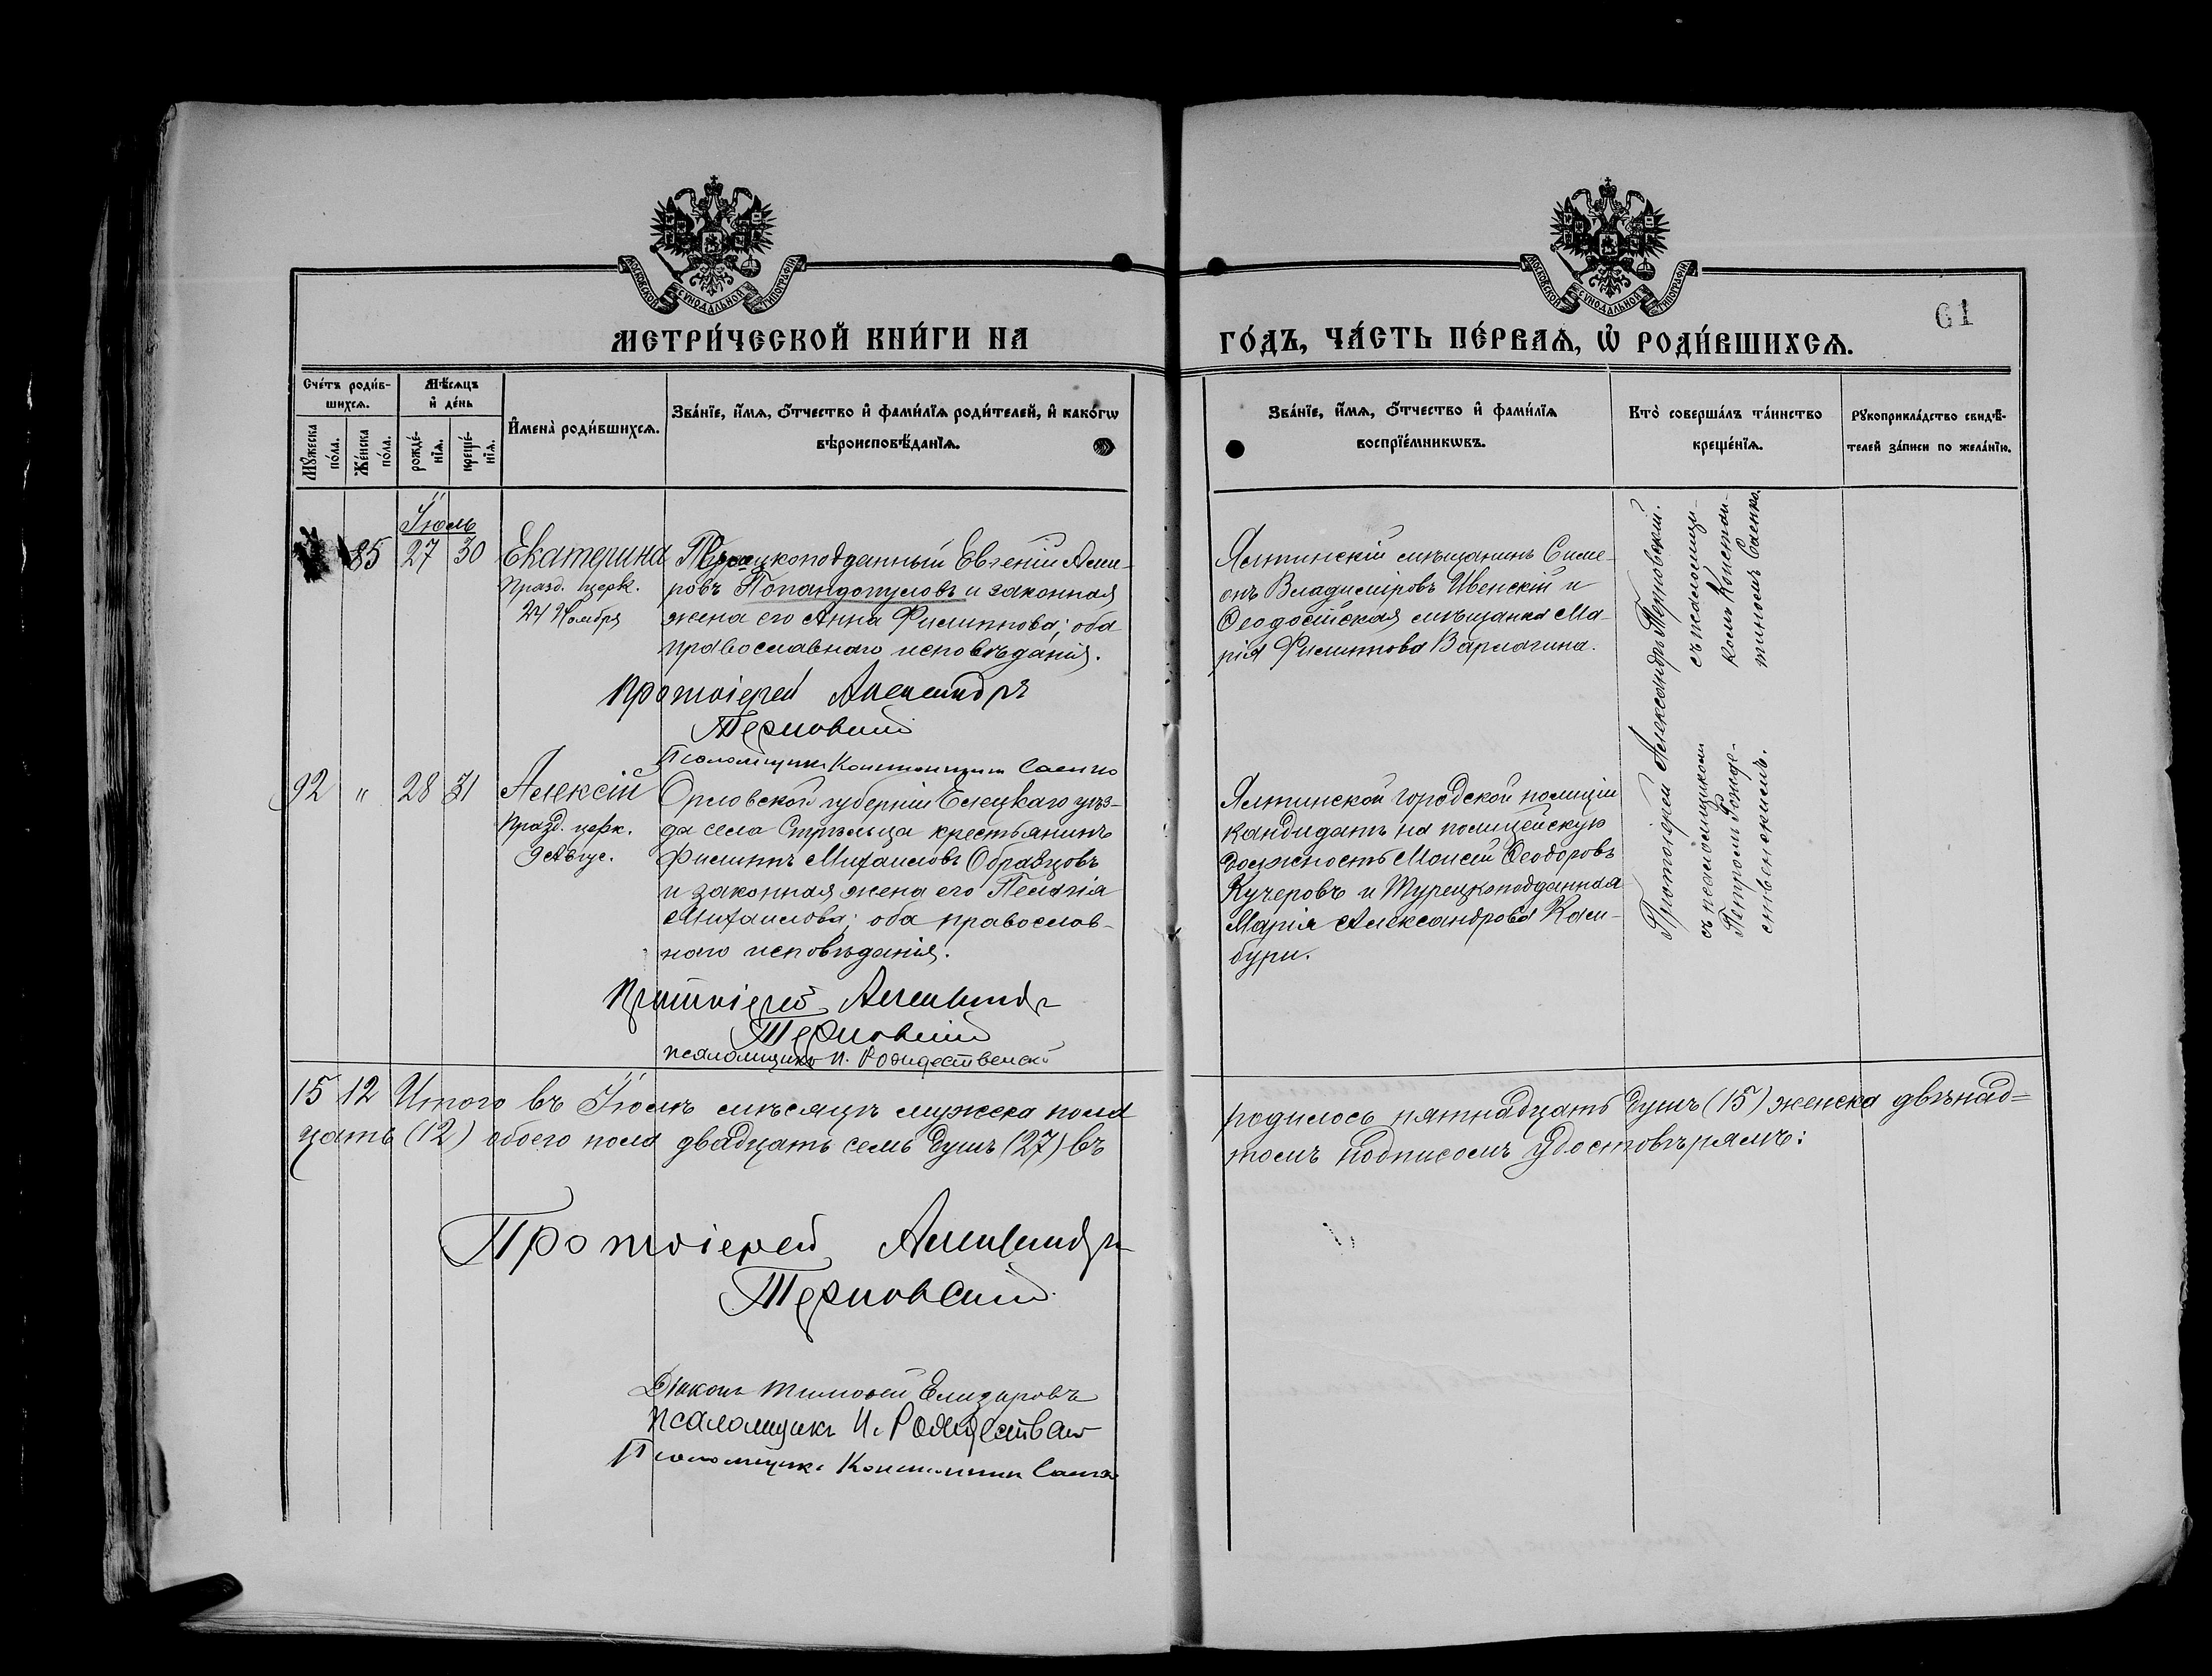 МОСКОВСКОЙ СѴНОДАЛЬНОЙ ТИПОГРАФІИ
МОСКОВСКОЙ СѴНОДАЛЬНОЙ ТИПОГРАФІИ
61
МЕТРИ́ЧЕСКОЙ КНИ́ГИ НА
ГО́ДЪ, ЧА́СТЬ ПЕ́РВАѦ, Ѡ РОДИ́ВШИХСѦ.
Сче́тъ роди́в-
шихсѧ.
Мꙋ́жеска
по́ла.
Же́нска
по́ла.
Мѣ́сѧцъ
и҆ де́нь
рожде́-
нїѧ.
креще́-
нїѧ.
И҆мена̀ роди́вшихсѧ.
Зва́нїе, и҆́мѧ, ѻ҆́тчество и҆ фами́лїѧ роди́телей, и҆ како́гѡ
вѣроисповѣ́данїѧ.
Зва́нїе, и҆́мѧ, ѻ҆́тчество и҆ фами́лїѧ
воспрїе́мникѡвъ.
Кто̀ соверша́лъ та́инство
креще́нїѧ.
Рꙋкоприкла́дство свидѣ́-
телей за́писи по жела́нїю.
Іюль
85 27 30 Екатерина
Празд. церк.
24 Ноября
Турецкоподданный Евгеній
ровъ Попандопуловъ и законная
жена его Анна Филиппова; оба
православнаго исповѣданія.
Протоіерей Александръ
Терновскій
Псаломщикъ Константинъ Саенко
Ялтинскій мѣщанинъ Симе-
онъ Владиміровъ Ивенскій и
Ѳеодосійская мѣщанка Ма-
рія Филиппова Варлагина.
Протоіерей Александръ Терновскій.
съ псаломщи-
комъ Констан-
тиномъ Саенко.
92 " 28 31 Алексій
Празд. церк.
9 Авгус.
Орловской губерніи Елецкаго уѣз-
да села Стрѣльца крестьянинъ
Филиппъ Михаиловъ Образцовъ
и законная жена его Пелагія
Михаилова; оба православ-
наго исповѣданія.
Протоіерей Александръ
Терновскій
псаломщикъ П. Рождественскій
Ялтинской городской полиціи
кандидатъ на полицейскую
должность Моисей Ѳеодоровъ
Кучеровъ и Турецкоподданная
Марія Александрова Кам-
бури.
съ псаломщикомъ
Петромъ Рожде-
ственскимъ.
15 12 Итого въ Іюлѣ мѣсяцѣ мужска пола
родилось пятнадцать душъ (15) женска двѣнад=
цать (12) обоего пола двадцать семь душъ (27) въ
томъ подписомъ удостовѣряемъ:
Протоіерей Александръ
Терновскій
Діаконъ Тимоѳей Елизаровъ
псаломщикъ П. Рождествен
Псаломщикъ Константинъ Саенко